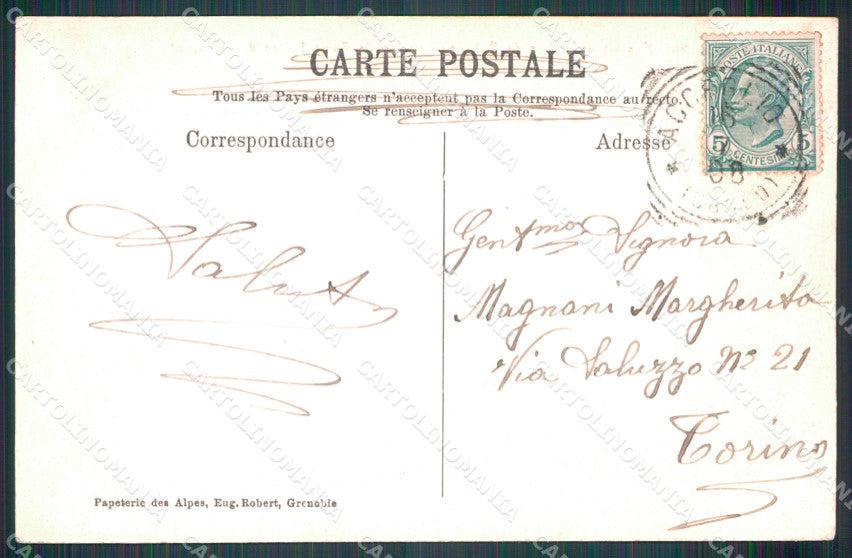 CARTE POSTALE
Tous les Pays étrangers n'acceptent pas la Correspondance au recto.
Se renseigner à la Poste.
Correspondance
Adresse
POSTE ITALIANE
5 CENTESIMI 5
08
Saluti
Gent.mos Signora
Magnani Margherita
Via Saluzzo No 21
Torino
Papeterie des Alpes, Eug. Robert, Grenoble
CARTOLINOMANIA